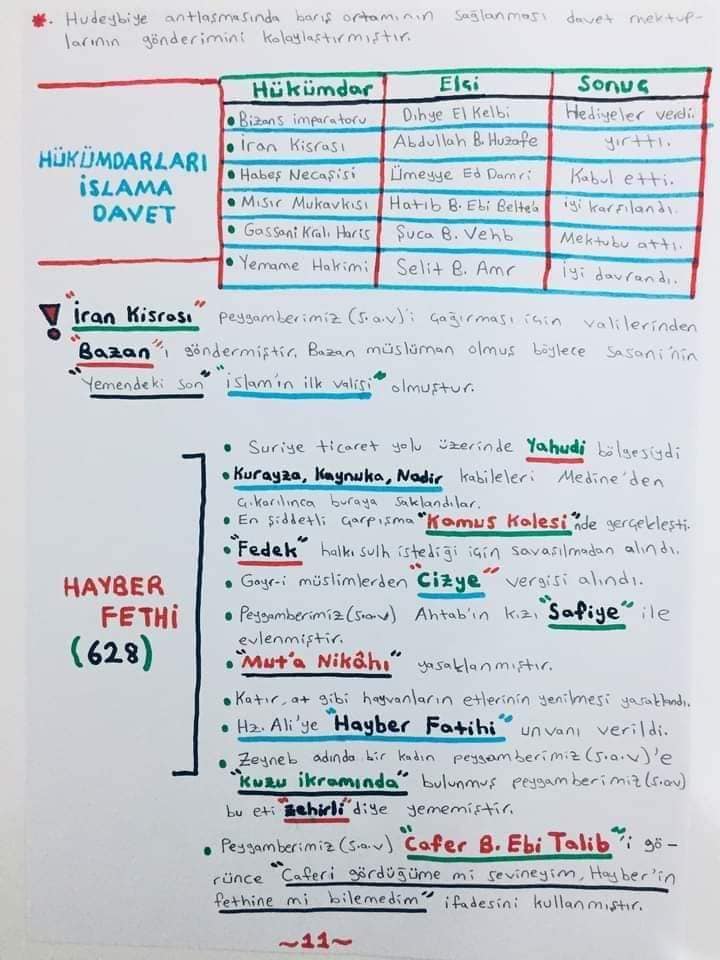 *. Hudeybiye antlaşmasında barış ortamının sağlanması davet mektup-
larının gönderimini kolaylaştırmıştır.
HÜKÜMDARLARI
İSLAMA
DAVET
Hükümdar Elçi Sonuç
• Bizans imparatoru Dıhye El Kelbi Hediyeler verdi.
• İran Kisrası Abdullah B. Huzafe yırttı.
• Habeş Necaşisi Ümeyye Ed Damri Kabul etti.
• Mısır Mukavkısı Hatıb B. Ebi Beltea iyi karşılandı.
• Gassani Kralı Haris Şuca B. Vehb Mektubu attı.
• Yemame Hakimi Selit B. Amr İyi davrandı.
! "İran Kisrası" Peygamberimiz (s.a.v)'i çağırması için valilerinden
"Bazan"ı göndermiştir. Bazan müslüman olmuş böylece Sasani'nin
"Yemendeki son" "İslam'ın ilk valisi" olmuştur.
HAYBER
FETHİ
(628)
• Suriye ticaret yolu üzerinde Yahudi bölgesiydi
• Kurayza, Kaynuka, Nadir kabileleri Medine'den
çıkarılınca buraya saklandılar.
• En şiddetli çarpışma "Kamus Kalesi"nde gerçekleşti.
• "Fedek" halkı sulh istediği için savaşılmadan alındı.
• Gayr-i müslimlerden "Cizye" vergisi alındı.
• Peygamberimiz (s.a.v) Ahtab'ın kızı "Safiye" ile
evlenmiştir.
• "Mut'a Nikâhı" yasaklanmıştır.
• Katır, at gibi hayvanların etlerinin yenilmesi yasaklandı.
• Hz. Ali'ye "Hayber Fatihi" unvanı verildi.
• Zeyneb adında bir kadın peygamberimiz (s.a.v)'e
"Kuzu ikramında" bulunmuş peygamberimiz (s.a.v)
bu eti "zehirli" diye yememiştir.
• Peygamberimiz (s.a.v) "Cafer B. Ebi Talib"'i gö-
rünce "Caferi gördüğüme mi sevineyim, Hayber'in
fethine mi bilemedim" ifadesini kullanmıştır.
~11~